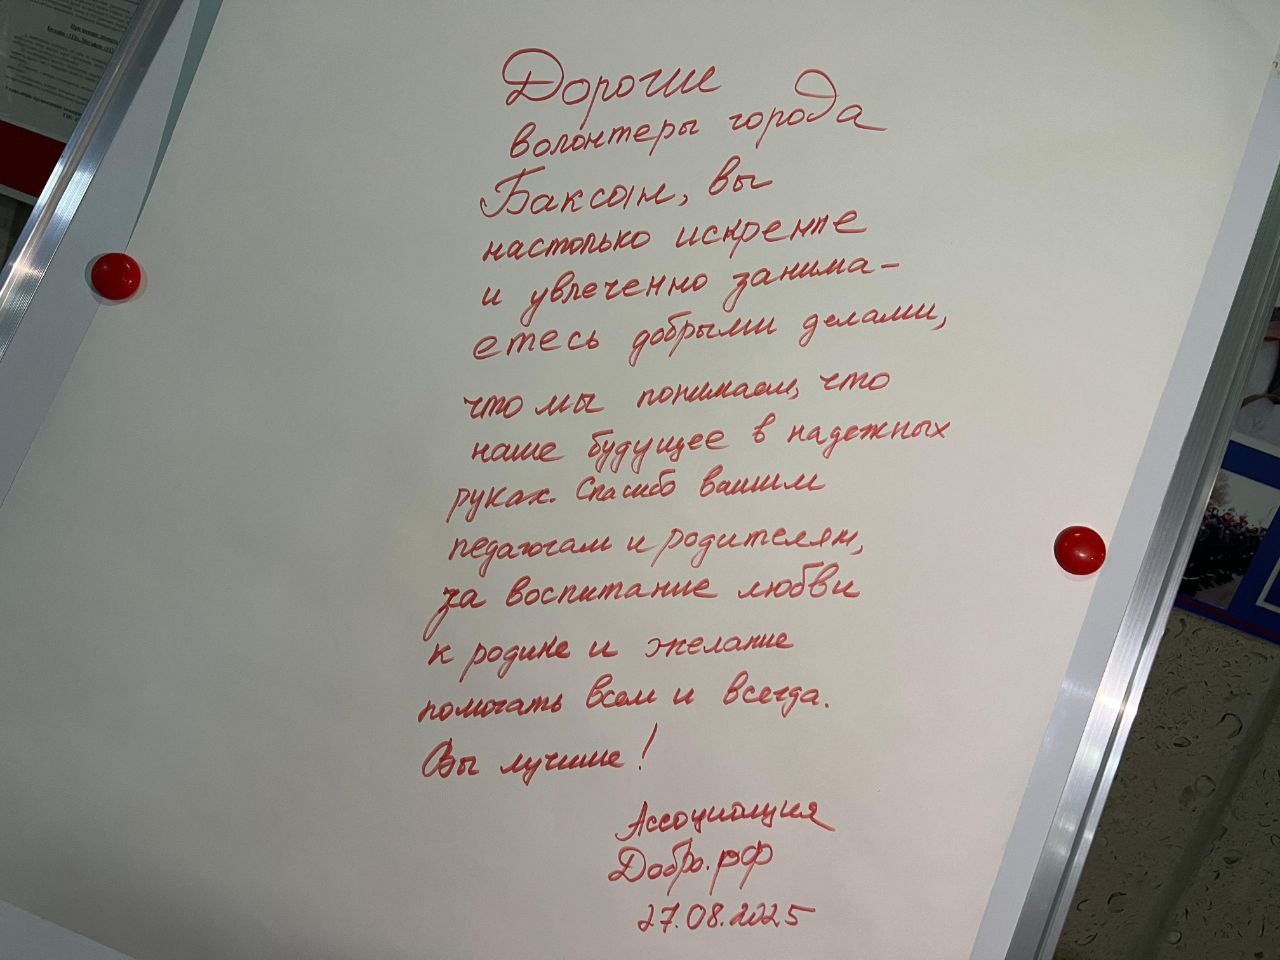 Дорогие
волонтеры города
Баксан, вы
настолько искренне
и увлеченно занима-
етесь добрыми делами,
что мы понимаем, что
наше будущее в надежных
руках. Спасибо вашим
педагогам и родителям,
за воспитание любви
к родине и желание
помогать всем и всегда.
Вы лучшие!
Ассоциация
Добро.рф
27.08.2025